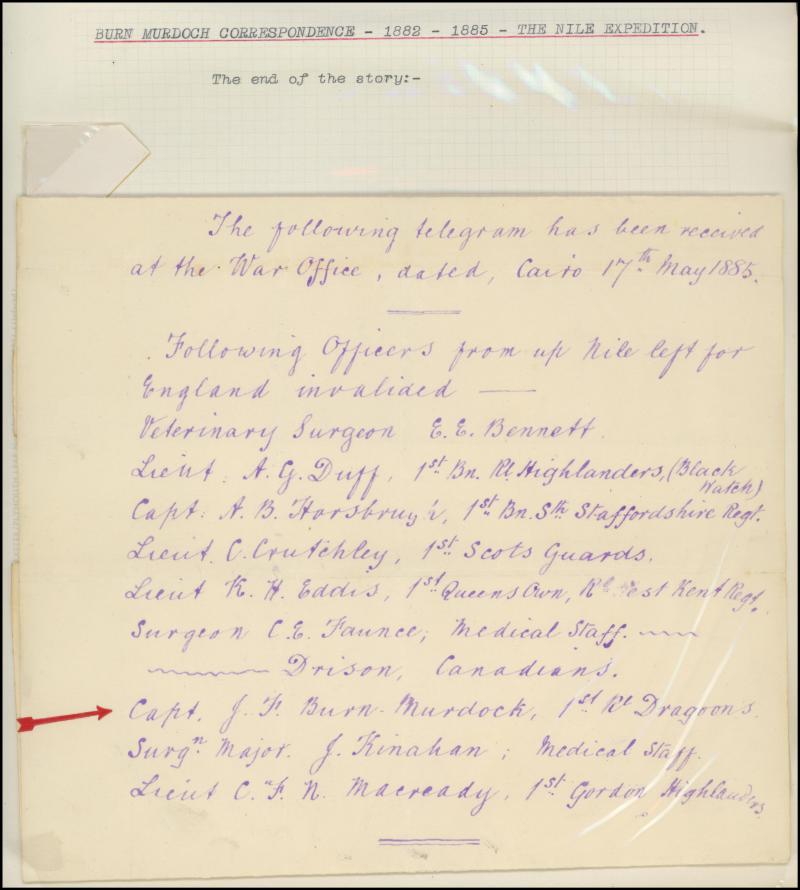 BURN MURDOCH CORRESPONDENCE - 1882 - 1885 - THE NILE EXPEDITION.
The end of the story:-
The following telegram has been received
at the War Office, dated, Cairo 17th May 1885.
Following Officers from up Nile left for
England invalided —
Veterinary Surgeon E. E. Bennett.
Lieut. A. G. Duff, 1st Bn. Rl. Highlanders, (Black
Watch)
Capt. A. B. Horsbrugh, 1st Bn. Sth Staffordshire Regt.
Lieut. C. Crutchley, 1st Scots Guards.
Lieut K. H. Eddis, 1st Queens Own, Rl West Kent Regt.
Surgeon C. E. Faunce, Medical Staff.
Drison, Canadians.
Capt. J. F. Burn-Murdock, 1st Rl Dragoons.
Surgn Major. J. Kinahan, Medical Staff.
Lieut C. F. N. Macready, 1st Gordon Highlanders.